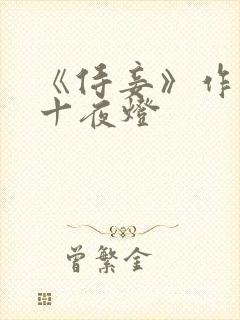 《侍妾》作
十夜燈
曾繁金